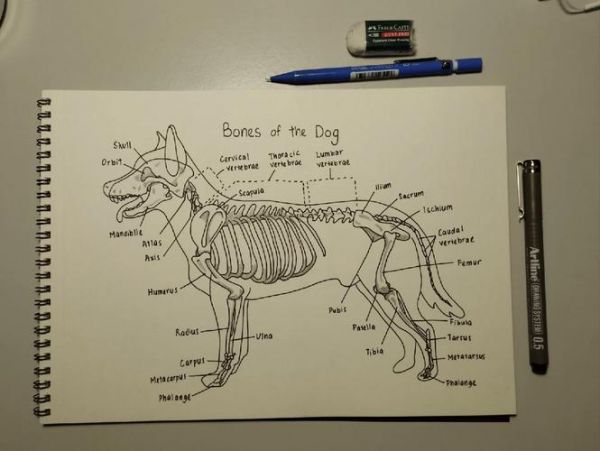 FABER-CASTELL
Bones of the Dog
Skull
Orbit
Cervical
vertebrae
Thoracic
vertebrae
Lumbar
vertebrae
Scapula
Ilium
Sacrum
Ischium
Caudal
vertebrae
Femur
Mandible
Atlas
Axis
Humerus
Radius
Ulna
Carpus
Metacarpus
Phalange
Pubis
Patella
Tibia
Fibula
Tarsus
Metatarsus
Phalange
Artline
DRAWING SYSTEM
0.5